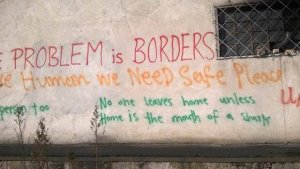 PROBLEM is BORDERS
Human we Need Safe Please
person too
No one leaves home unless
Home is the mouth of a shark